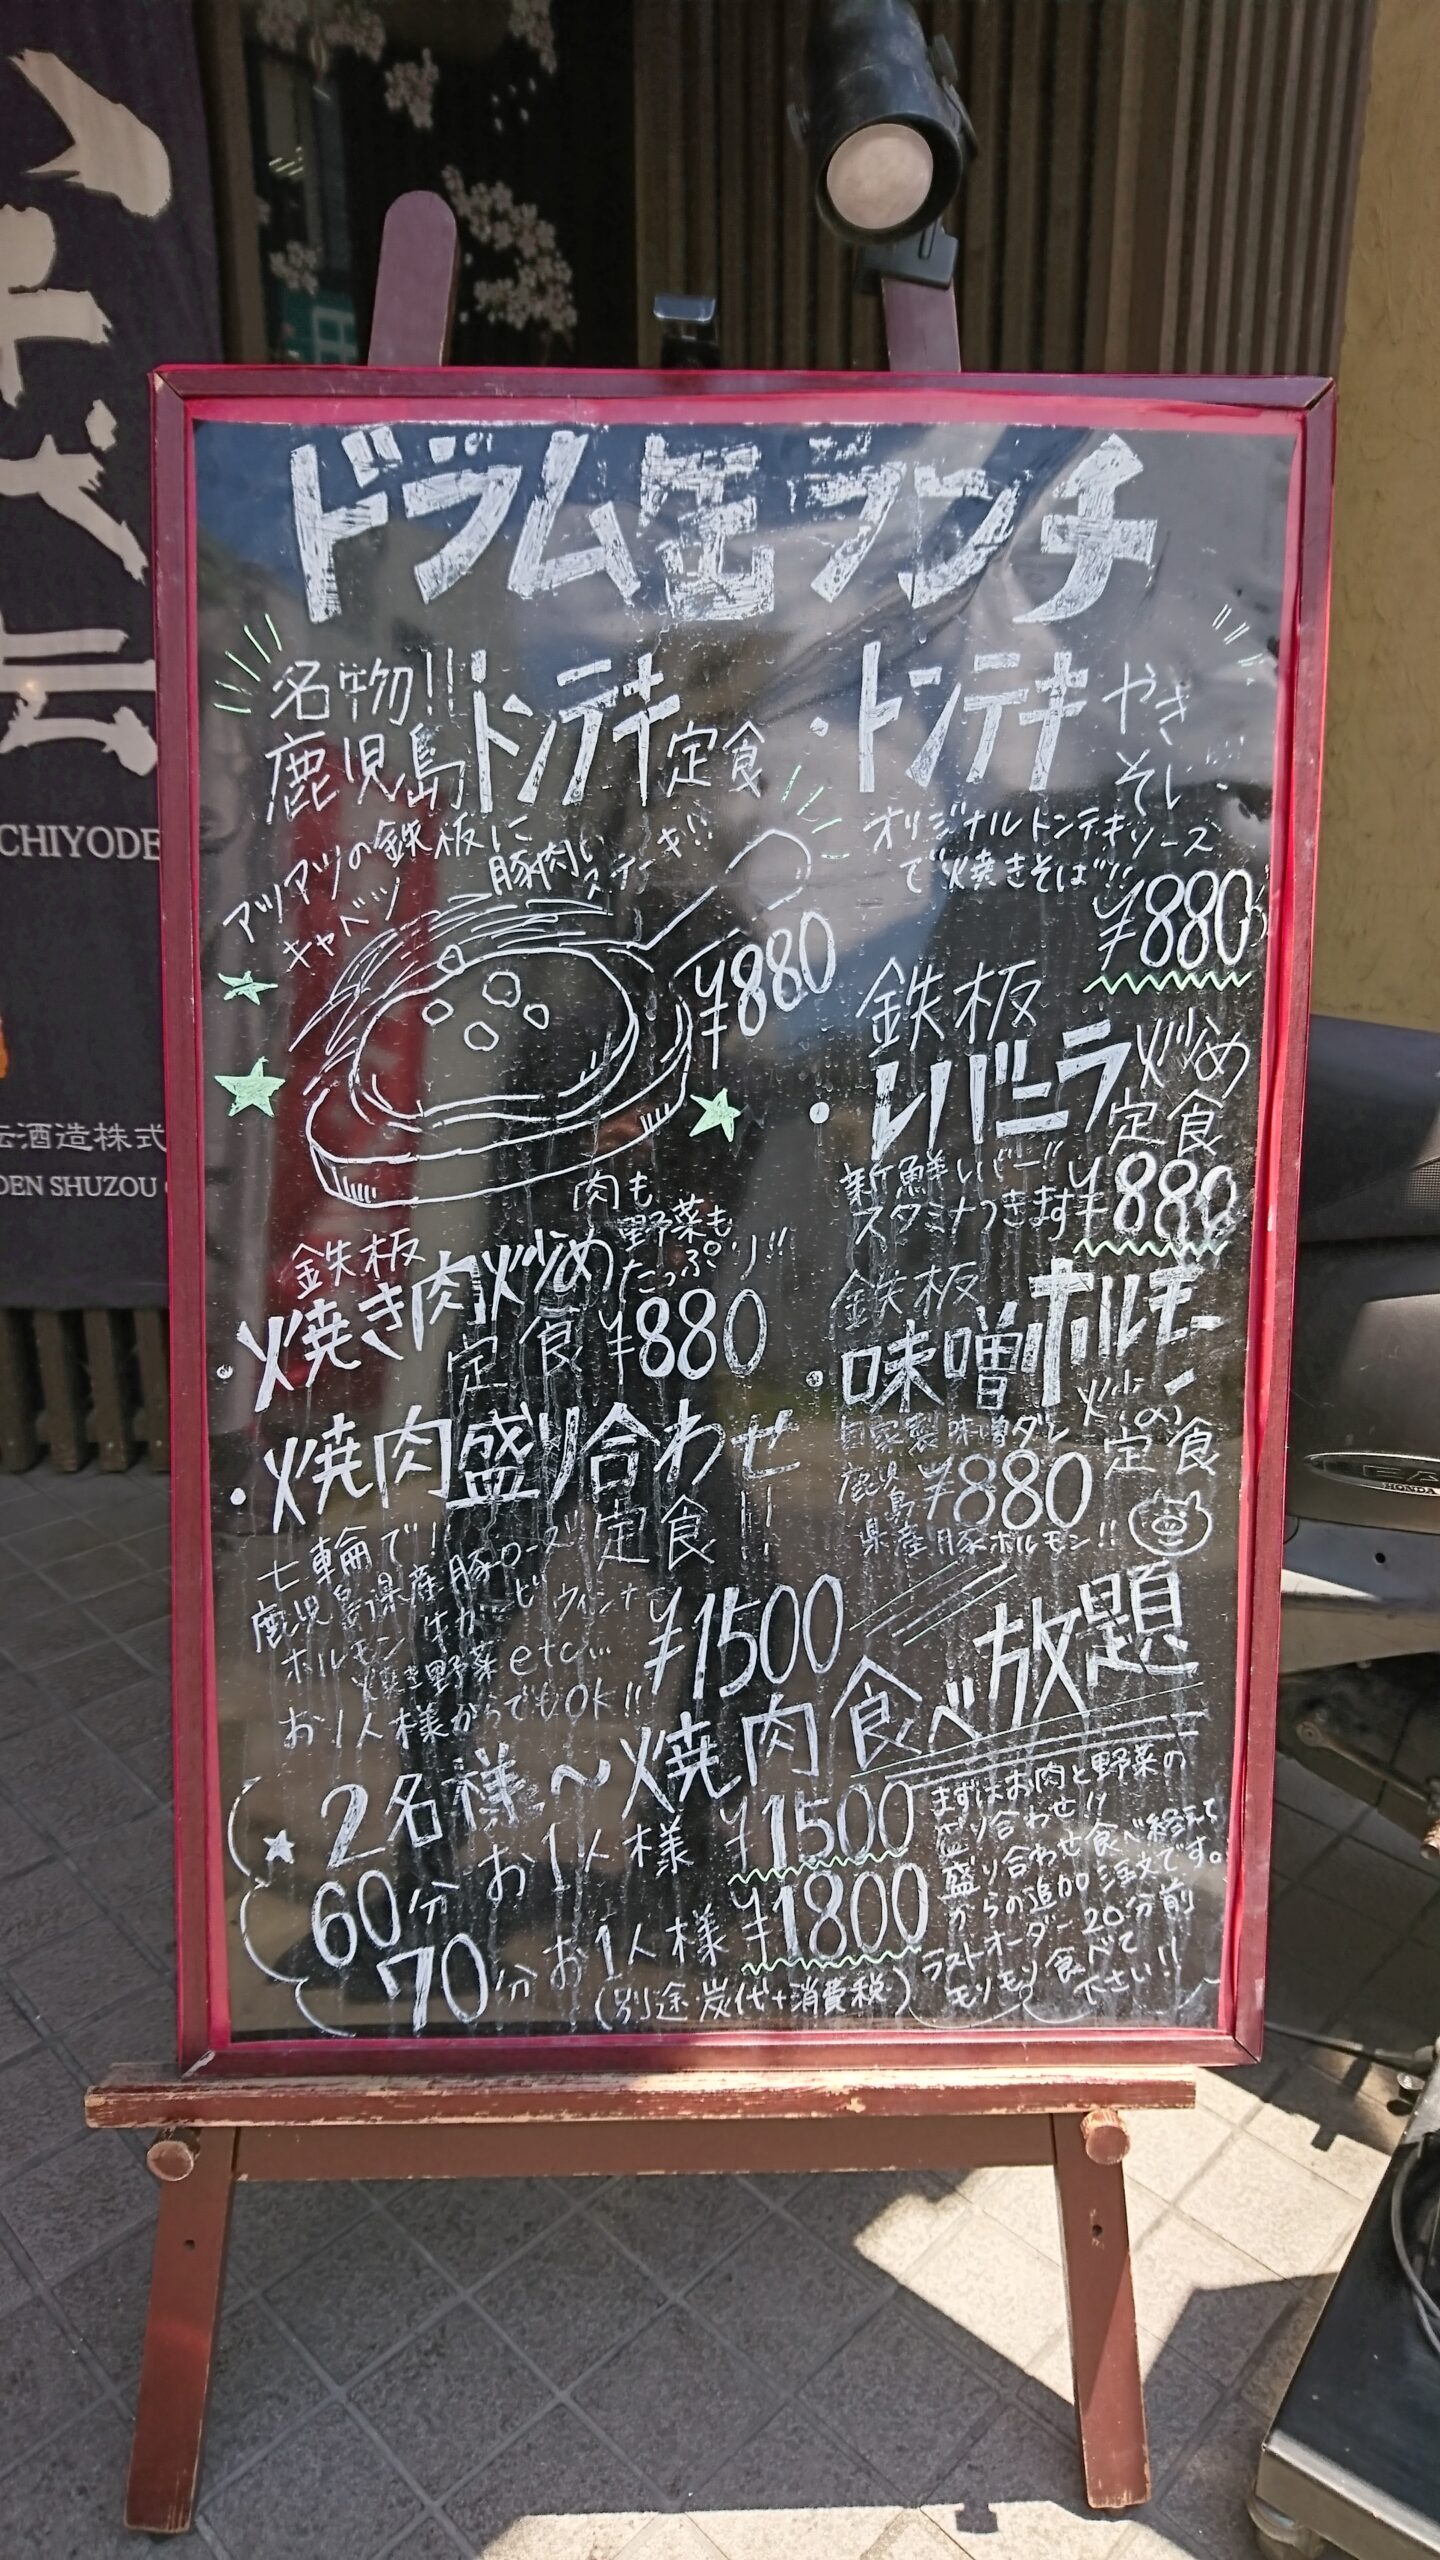 ドラム缶ランチ
名物!!
鹿児島トンテキ定食
アツアツの鉄板に
キャベツ
豚肉
ステーキ!!
¥880
・トンテキ
やき
そば
オリジナルトンテキソース
で焼きそば!!
¥880
鉄板
・レバニラ炒め
定食
新鮮レバー!!
スタミナつきます
¥880
鉄板
・焼き肉炒め
定食
肉も
野菜も
たっぷり!!
¥880
鉄板
・味噌ホルモン
炒め
定食
自家製味噌ダレ
鹿児島
県産豚ホルモン!!
¥880
・焼肉盛り合わせ
定食
七輪で!
鹿児島県産豚ロース
ホルモン 牛カルビ ウィンナ
焼き野菜etc...
お1人様からでもOK!!
¥1500
★2名様～焼肉食べ放題
60分 お1人様 ¥1500
70分 お1人様 ¥1800
(別途・炭代+消費税)
まずはお肉と野菜の
盛り合わせ!!
盛り合わせ食べ終えて
からの追加注文です。
ラストオーダー20分前
モリモリ食べて
下さい!!
CHIYODE
酒造株式
DEN SHUZOU
HONDA